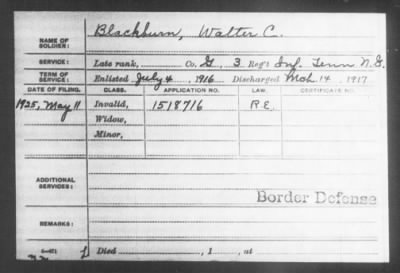 NAME OF SOLDIER: Blackburn, Walter C.
SERVICE: Late rank, Co. G, 3 Reg't Inf. Tenn N.G.
TERM OF SERVICE: Enlisted July 4, 1916. Discharged Mch 14, 1917
DATE OF FILING. CLASS. APPLICATION NO. LAW. CERTIFICATE NO.
1925, May 11 Invalid, 1518716 R.E.
Widow,
Minor,
ADDITIONAL SERVICES:
Border Defense
REMARKS:
Died, 1, at